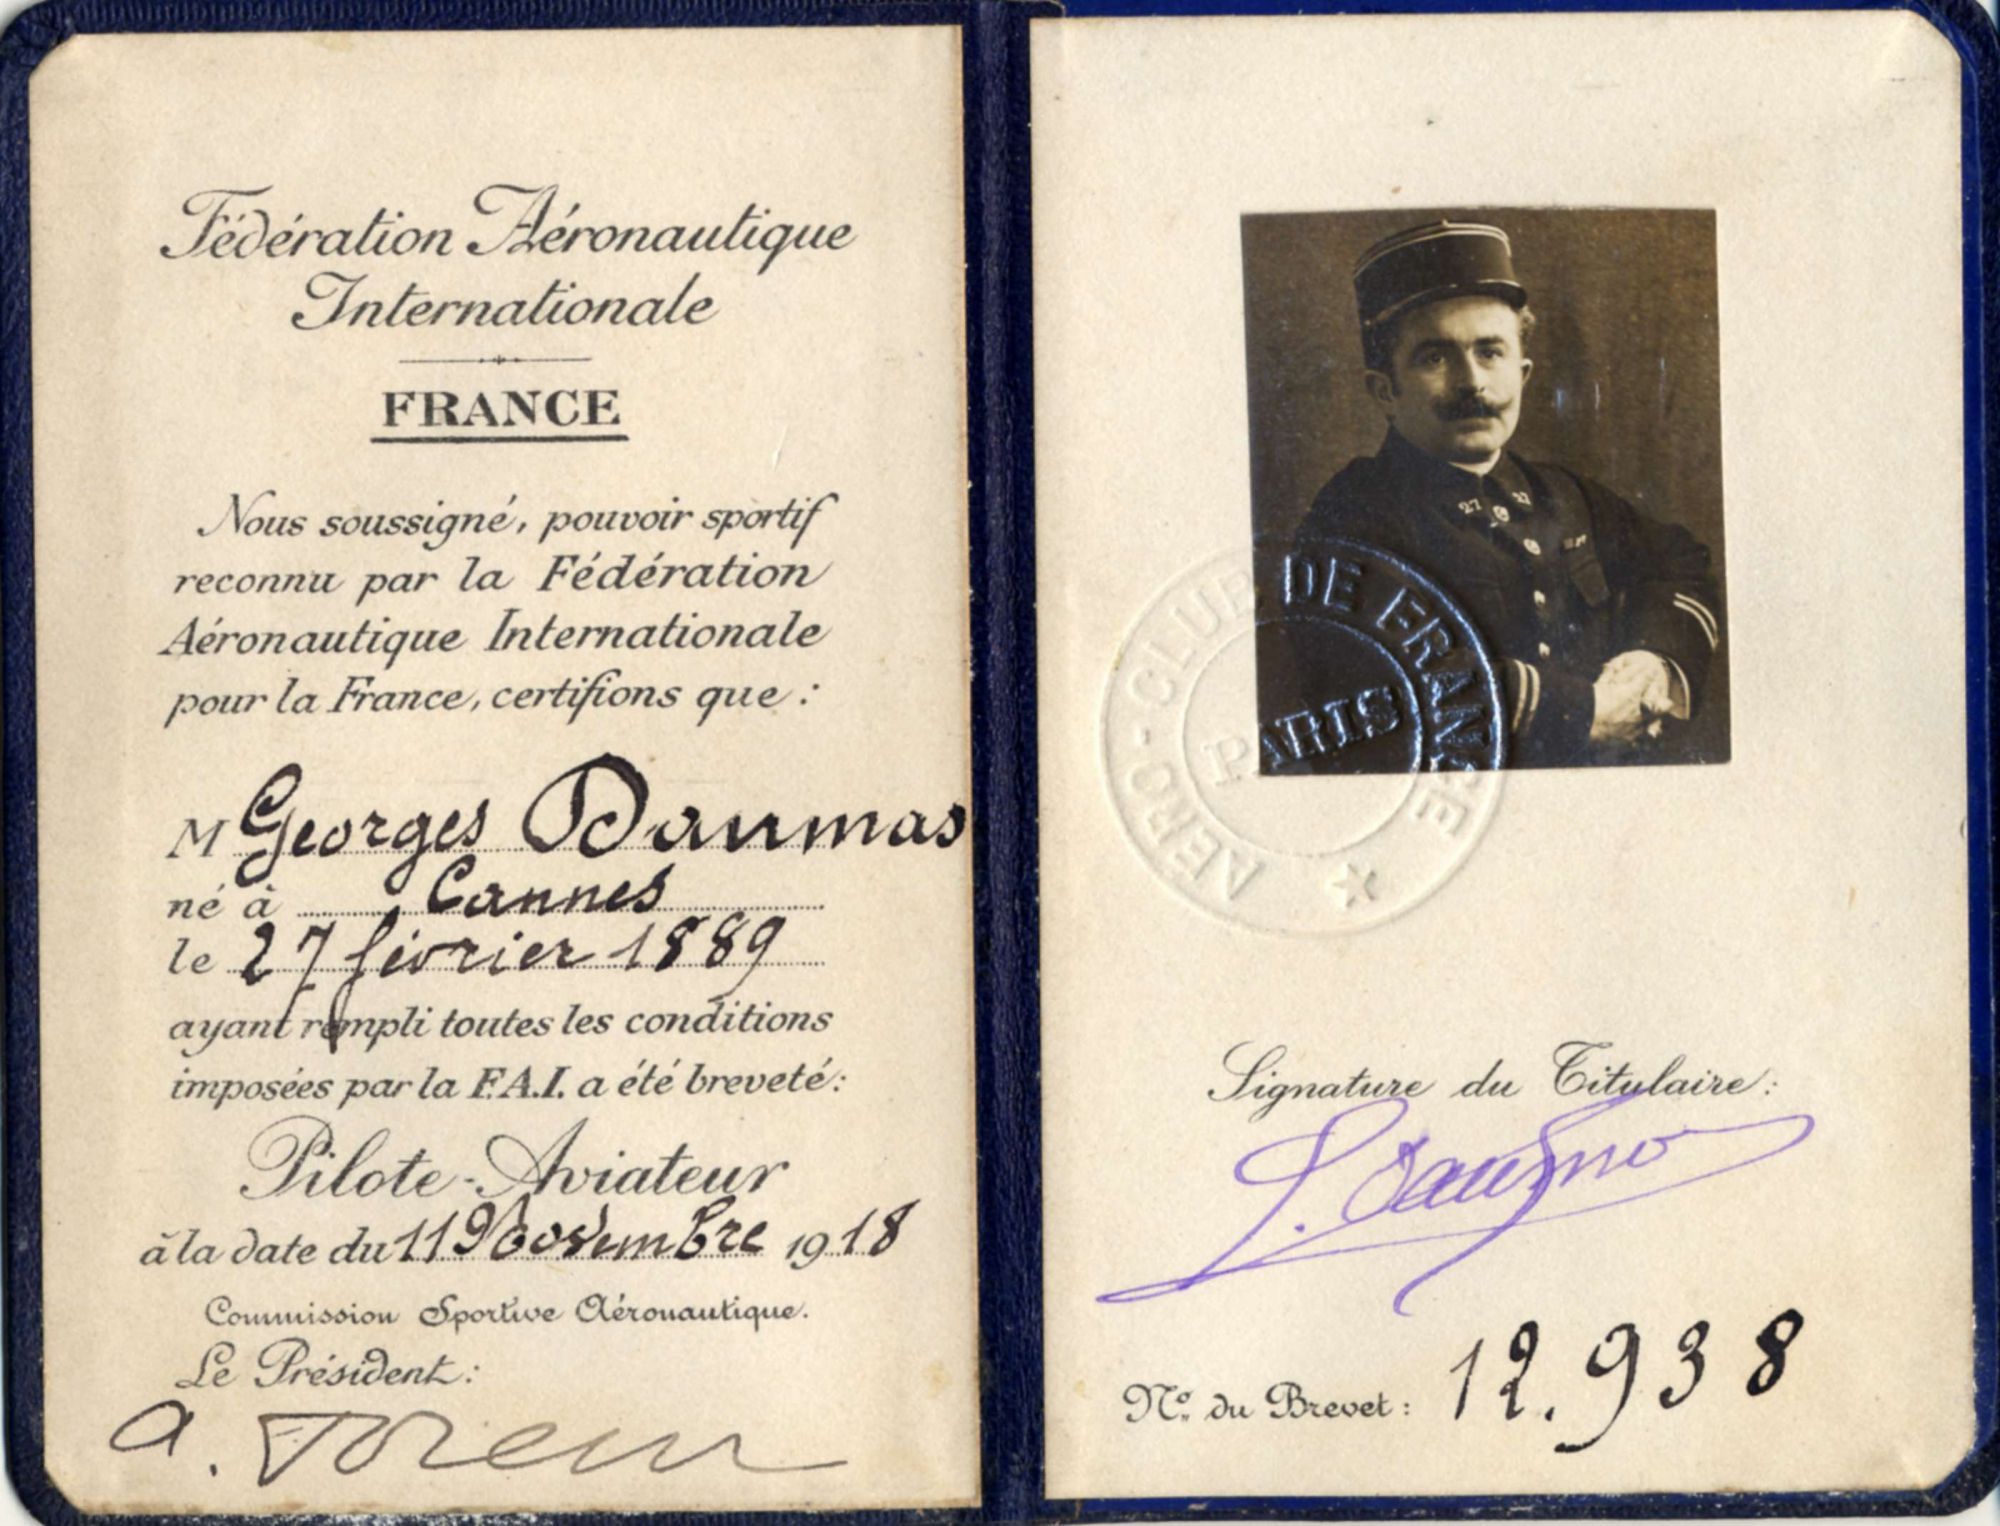 Fédération Aéronautique
Internationale
FRANCE
Nous soussigné, pouvoir sportif
reconnu par la Fédération
Aéronautique Internationale
pour la France, certifions que :
M Georges Daumas
né à Cannes
le 27 février 1889
ayant rempli toutes les conditions
imposées par la F.A.I. a été breveté :
Pilote-Aviateur
à la date du 11 Novembre 1918
Commission Sportive Aéronautique.
Le Président :
27 27
AERO-CLUB DE FRANCE
PARIS
Signature du Titulaire :
N° du Brevet : 12.938